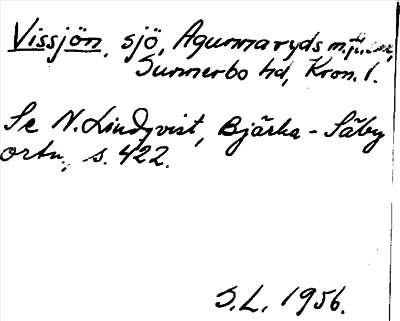 Vissjön, sjö, Agunnaryds m. fl. snr,
Sunnerbo hd, Kron. l.
Se N. Lindqvist, Bjärka-Säby
ortn., s. 422.
S.L. 1956.